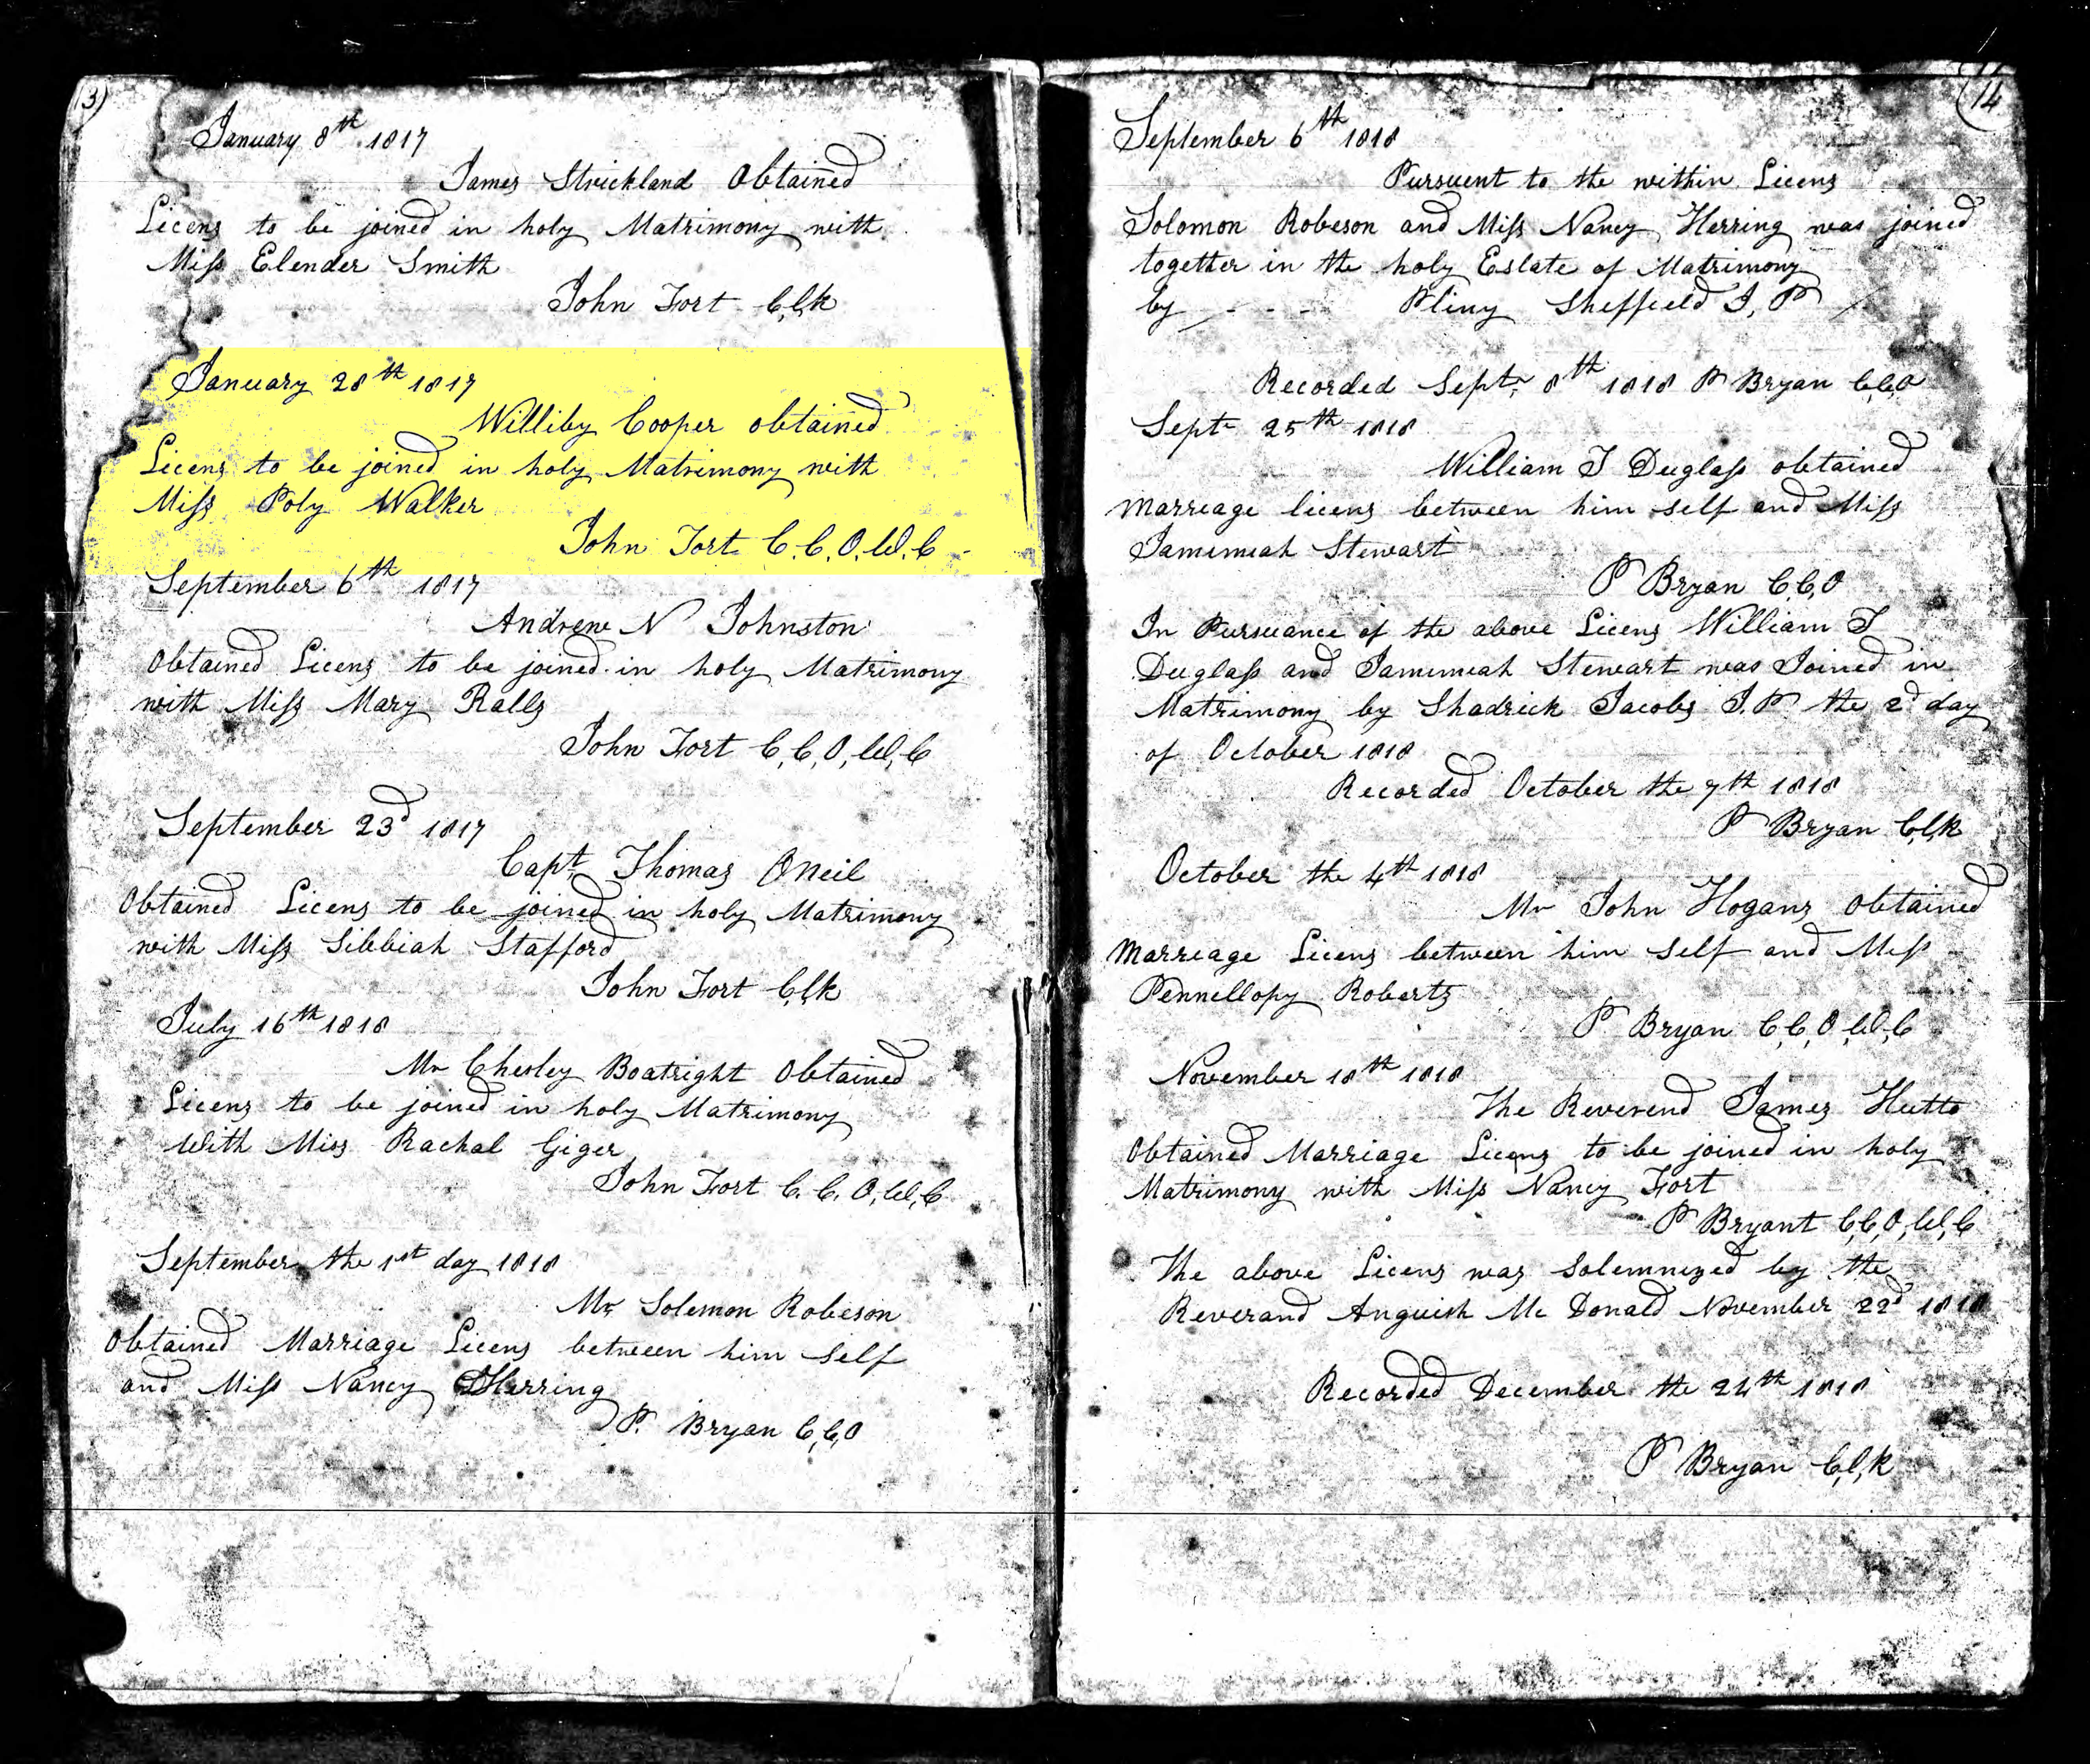 13)
January 8th 1817
James Strickland Obtained
Licens to be joined in holy Matrimony with
Miss Elender Smith
John Fort Clk
January 28th 1817
Williby Cooper obtained
Licens to be joined in holy Matrimony with
Miss Poly Walker
John Fort C.C.O.W.C
September 6th 1817
Andrew N Johnston
Obtained Licens to be joined in holy Matrimony
with Miss Mary Ralls
John Fort C,C,O,W,C
September 23d 1817
Capt Thomas ONeil
Obtained Licens to be joined in holy Matrimony
with Miss Sibbiah Stafford
John Fort Clk
July 16th 1818
Mr Chesley Boatright Obtained
Licens to be joined in holy Matrimony
With Miss Rachal Giger
John Fort C.C.O,W,C
September the 1st day 1818
Mr Solemon Robeson
Obtained Marriage Licens between him self
and Miss Nancy Herring
P. Bryan C,C,O
(14
September 6th 1818
Pursuent to the within Licens
Solomon Robeson and Miss Nancy Herring was joined
together in the holy Estate of Matrimony
by - - - Pliny Sheffield J, P
Recorded Sept 8th 1818 P Bryan C,C,O
Sept 25th 1818
William J Duglass obtained
Marreage licens between him self and Miss
Jamimeah Stewart
P Bryan C,C,O
In Pursuance of the above Licens William J
Duglass and Jamimeah Stewart was Joined in
Matrimony by Shadrick Jacobs J.P. the 2d day
of October 1818
Recorded October the 7th 1818
P Bryan Clk
October the 4th 1818
Mr John Hogans Obtained
Marreage Licens between him self and Miss
Pennellopy Roberts
P Bryan C,C,O,W,C
November 18th 1818
The Reverend James Hutto
Obtained Marriage Licens to be joined in holy
Matrimony with Miss Nancy Fort
P Bryant C,C,O,W,C
The above Licens was Solemnized by the
Reverand Anguish Mc Donald November 22d 1818
Recorded December the 24th 1818
P Bryan C,l,k